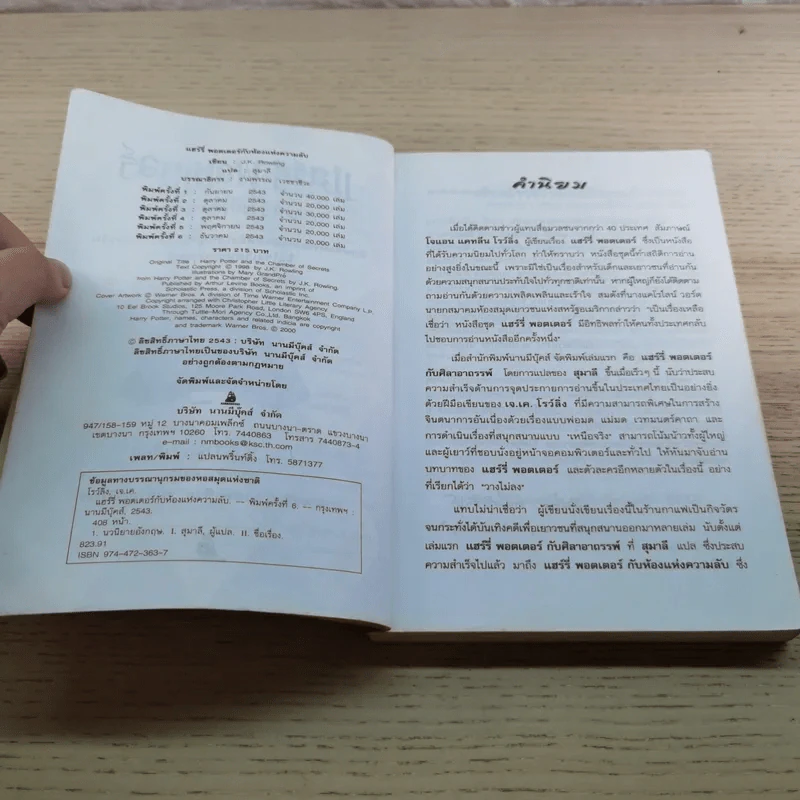 แฮร์รี่ พอตเตอร์กับห้องแห่งความลับ
เขียน : J.K. Rowling
แปล : สุมาลี
บรรณาธิการ : งามพรรณ เวชชาชีวะ
พิมพ์ครั้งที่ 1 : กันยายน 2543 จำนวน 40,000 เล่ม
พิมพ์ครั้งที่ 2 : ตุลาคม 2543 จำนวน 20,000 เล่ม
พิมพ์ครั้งที่ 3 : ตุลาคม 2543 จำนวน 30,000 เล่ม
พิมพ์ครั้งที่ 4 : ตุลาคม 2543 จำนวน 20,000 เล่ม
พิมพ์ครั้งที่ 5 : พฤศจิกายน 2543 จำนวน 20,000 เล่ม
พิมพ์ครั้งที่ 6 : ธันวาคม 2543 จำนวน 20,000 เล่ม
ราคา 215 บาท
Original Title : Harry Potter and the Chamber of Secrets.
Text Copyright © 1998 by J.K. Rowling
Illustrations by Mary GrandPré
from Harry Potter and the Chamber of Secrets by J.K. Rowling.
Published by Arthur Levine Books, an imprint of
Scholastic Press, a division of Scholastic Inc.
Cover Artwork © Warner Bros. A division of Time Warner Entertainment Company L.P.
Copyright arranged with Christopher Little Literary Agency
10 Eel Brook Studios, 125 Moore Park Road, London SW6 4PS, England
Through Tuttle-Mori Agency Co.,Ltd, Bangkok
Harry Potter, names, characters and related indicia are copyright
and trademark Warner Bros. © 2000
© ลิขสิทธิ์ภาษาไทย 2543 : บริษัท นานมีบุ๊คส์ จำกัด
ลิขสิทธิ์ภาษาไทยเป็นของบริษัท นานมีบุ๊คส์ จำกัด
อย่างถูกต้องตามกฎหมาย
จัดพิมพ์และจัดจำหน่ายโดย
บริษัท นานมีบุ๊คส์ จำกัด
947/158-159 หมู่ 12 บางนาคอมเพล็กซ์ ถนนบางนา-ตราด แขวงบางนา
เขตบางนา กรุงเทพฯ 10260 โทร. 7440863 โทรสาร 7440873-4
e-mail : nmbooks@ksc.th.com
เพลท/พิมพ์ : แปลนพริ้นท์ติ้ง โทร. 5871377
ข้อมูลทางบรรณานุกรมของหอสมุดแห่งชาติ
โรว์ลิ่ง, เจ.เค.
แฮร์รี่ พอตเตอร์กับห้องแห่งความลับ. -- พิมพ์ครั้งที่ 6. -- กรุงเทพฯ :
นานมีบุ๊คส์, 2543.
408 หน้า.
1. นวนิยายอังกฤษ. I. สุมาลี, ผู้แปล. II. ชื่อเรื่อง.
823.91
ISBN 974-472-363-7
คำนิยม
เมื่อได้ติดตามข่าวผู้แทนสื่อมวลชนจากกว่า 40 ประเทศ สัมภาษณ์
โจแอน แคทลีน โรว์ลิ่ง ผู้เขียนเรื่อง แฮร์รี่ พอตเตอร์ ซึ่งเป็นหนังสือ
ที่ได้รับความนิยมไปทั่วโลก ทำให้ทราบว่า หนังสือชุดนี้ทำสถิติการอ่าน
อย่างสูงยิ่งในขณะนี้ เพราะมิใช่เป็นเรื่องสำหรับเด็กและเยาวชนที่อ่านกัน
ด้วยความสนุกสนานประทับใจไปทั่วทุกชาติเท่านั้น หากผู้ใหญ่ก็ยังได้ติดตาม
ถามอ่านกันด้วยความเพลิดเพลินและเร้าใจ สมดังที่นางแคโรไลน์ วอร์ด
นายกสมาคมห้องสมุดเยาวชนแห่งสหรัฐอเมริกากล่าวว่า "เป็นเรื่องเหลือ
เชื่อว่า หนังสือชุด แฮร์รี่ พอตเตอร์ มีอิทธิพลทำให้คนทั้งประเทศกลับ
ไปชอบการอ่านหนังสืออีกครั้งหนึ่ง"
เมื่อสำนักพิมพ์นานมีบุ๊คส์ จัดพิมพ์เล่มแรก คือ แฮร์รี่ พอตเตอร์
กับศิลาอาถรรพ์ โดยการแปลของ สุมาลี ขึ้นเมื่อเร็วๆ นี้ นับว่าประสบ
ความสำเร็จด้านการจุดประกายการอ่านขึ้นในประเทศไทยเป็นอย่างยิ่ง
ด้วยฝีมือเขียนของ เจ.เค. โรว์ลิ่ง ที่มีความสามารถพิเศษในการสร้าง
จินตนาการอันเนื่องด้วยเรื่องแบบพ่อมด แม่มด เวทมนตร์คาถา และ
การดำเนินเรื่องที่สนุกสนานแบบ "เหนือจริง" สามารถโน้มน้าวทั้งผู้ใหญ่
และผู้เยาว์ที่ชอบนั่งอยู่หน้าจอคอมพิวเตอร์และทั่วไป ให้หันมาจับอ่าน
บทบาทของ แฮร์รี่ พอตเตอร์ และตัวละครอีกหลายตัวในเรื่องนี้ อย่าง
ที่เรียกได้ว่า "วางไม่ลง"
แทบไม่น่าเชื่อว่า ผู้เขียนนั่งเขียนเรื่องนี้ในร้านกาแฟเป็นกิจวัตร
จนกระทั่งได้บันเทิงคดีเพื่อเยาวชนที่สนุกสนานออกมาหลายเล่ม นับตั้งแต่
เล่มแรก แฮร์รี่ พอตเตอร์ กับศิลาอาถรรพ์ ที่ สุมาลี แปล ซึ่งประสบ
ความสำเร็จไปแล้ว มาถึง แฮร์รี่ พอตเตอร์ กับห้องแห่งความลับ ซึ่ง